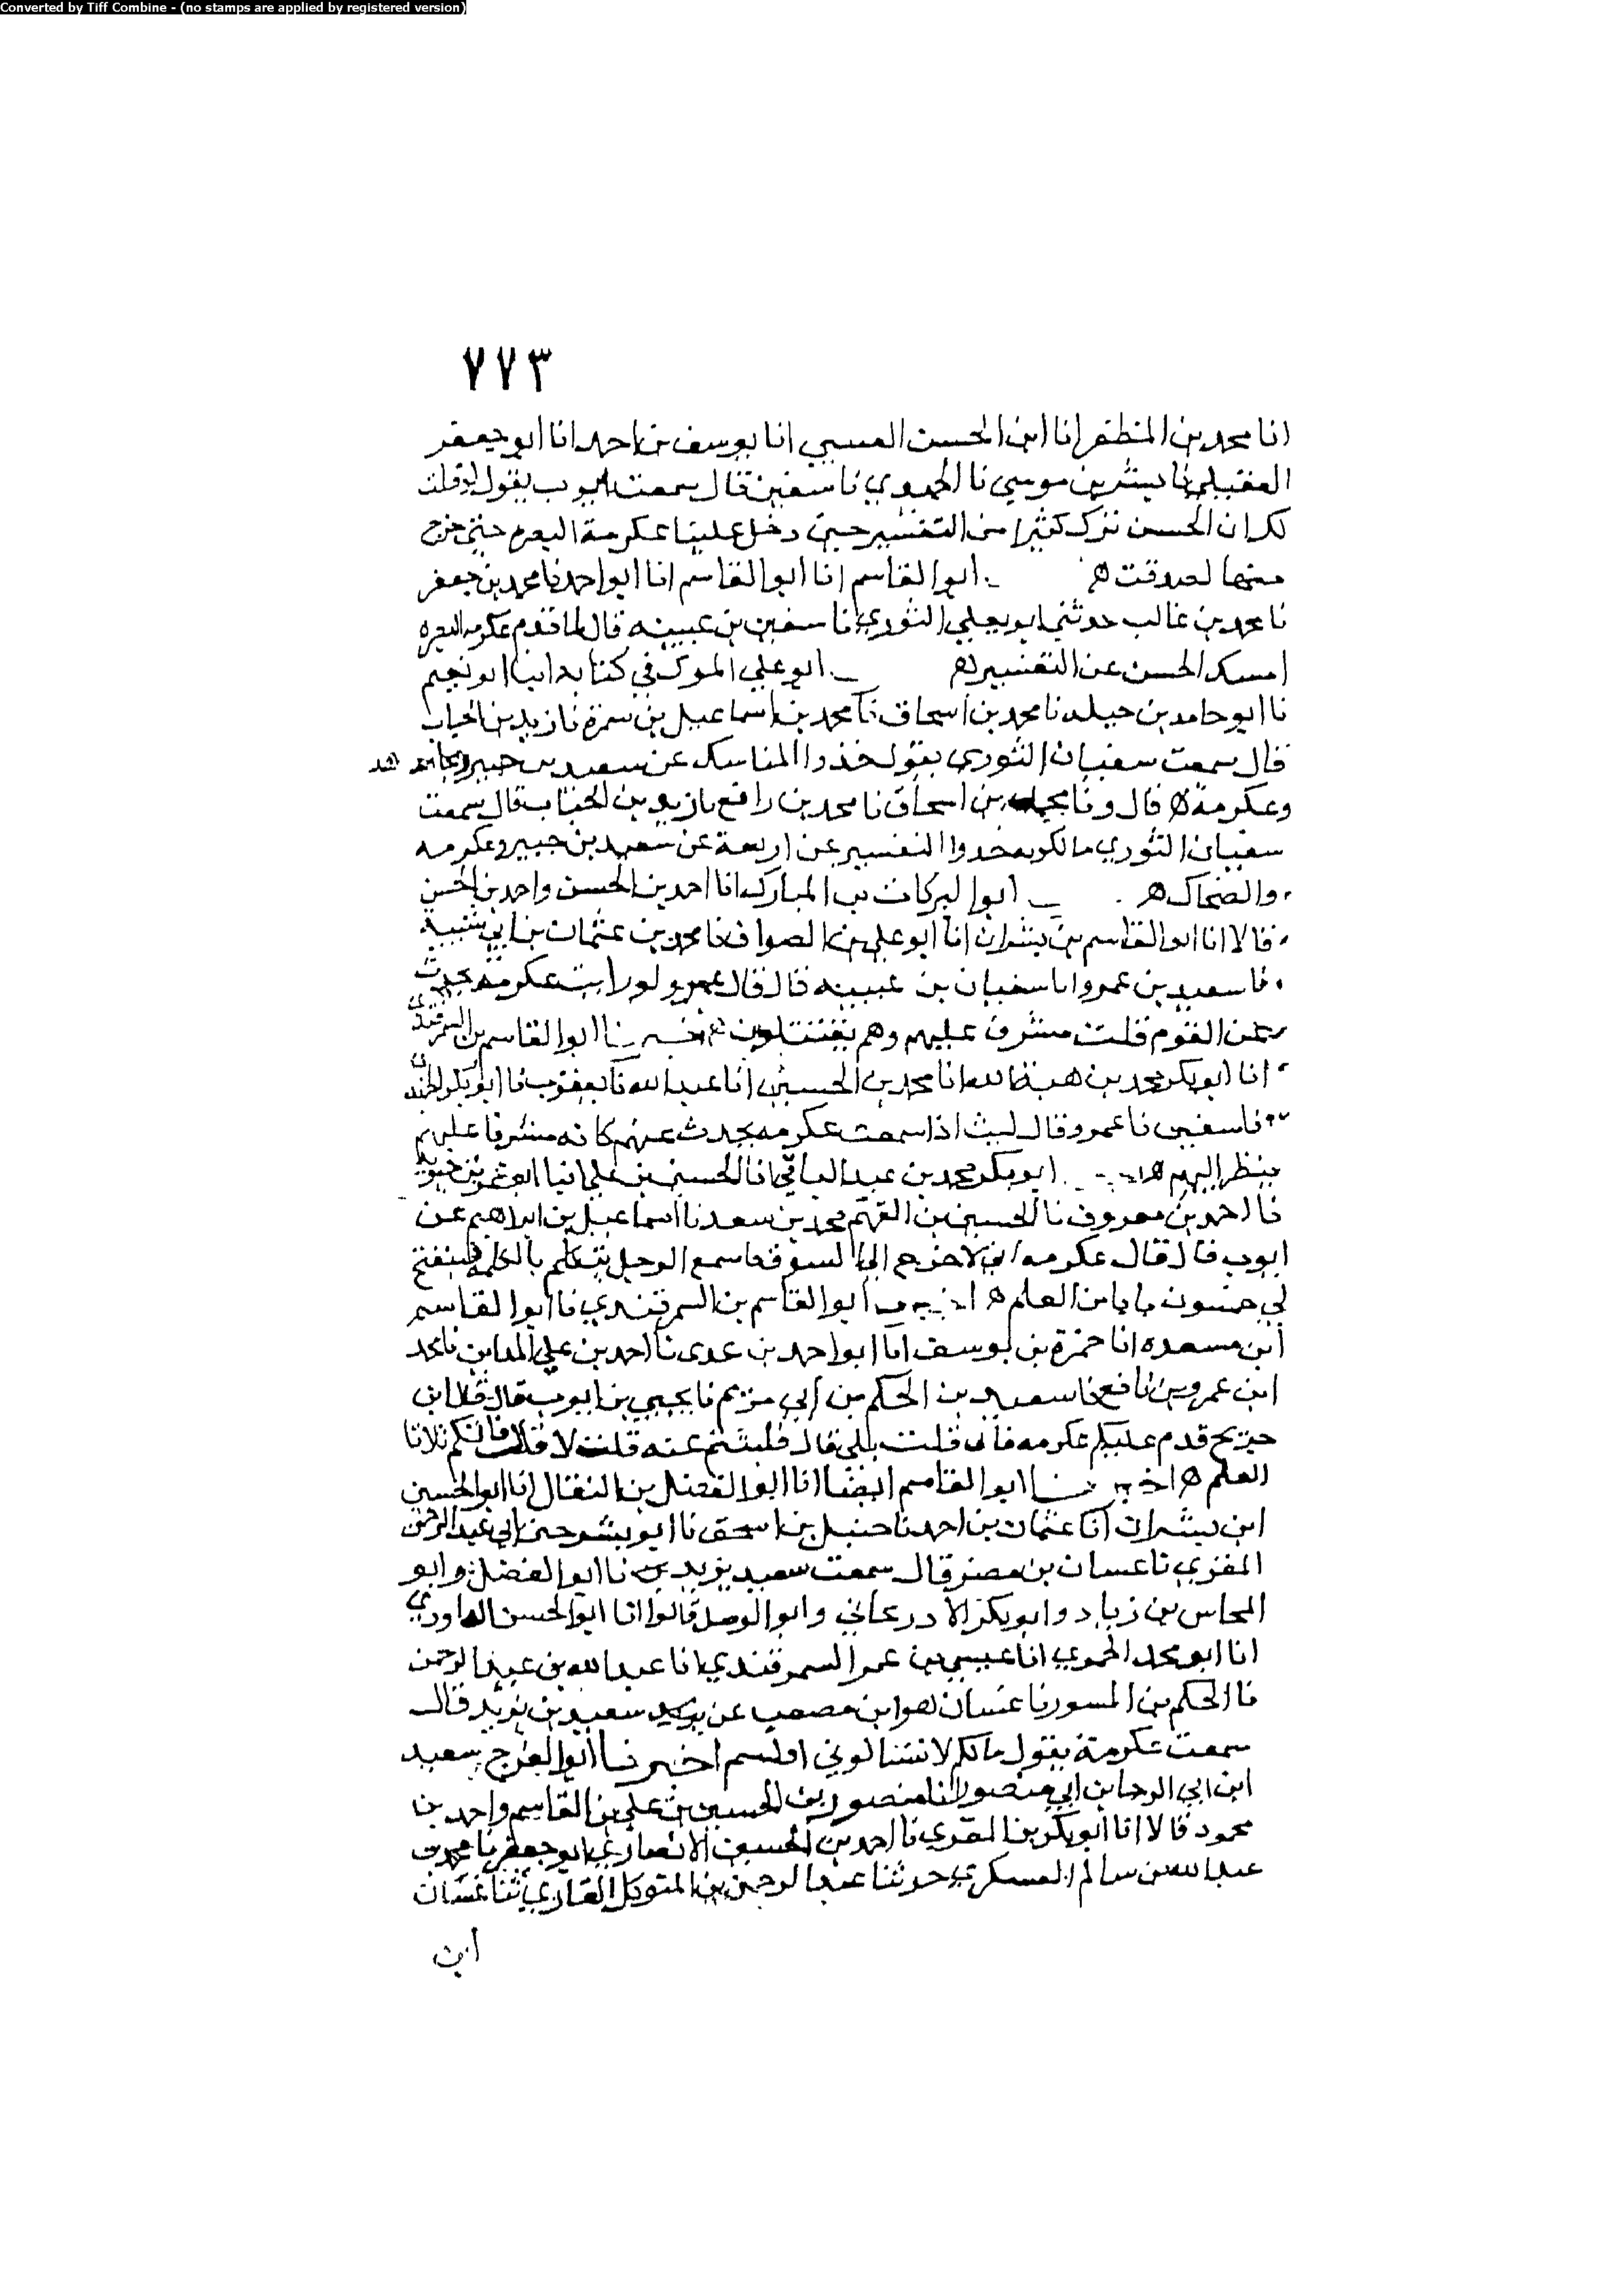 Converted by Tiff Combine - (no stamps are applied by registered version)
٧٧٣
انا محمد بن المظفر انا ابن الحسن العسي انا يوسف بن احمد انا ابو جعفر
العقيلي نا بشر بن موسى نا الحميدي نا سفين قال سمعت ايوب يقول لو قلت
لك ان الحسن ترك كثيرا من التفسير حين دخل علينا عكرمة البصرة حتى خرج
منها لصدقت ابو القاسم انا ابو القاسم انا ابو احمد نا محمد بن جعفر
نا محمد بن غالب حدثني ابو يعلى الثوري نا سفين بن عيينه قال لما قدم عكرمه البصره
امسك الحسن عن التفسير ابو علي في كتابه انبا ابو نعيم
نا ابو حامد بن جبله نا محمد بن اسحاق نا محمد بن اسماعيل بن سمرة نا زيد بن الحباب
قال سمعت سفيان الثوري يقول خذوا المناسك عن سعيد بن جبير ومجاهد
وعكرمة قال ونا بن اسحاق نا محمد بن رافع نا زيد بن الحباب قال سمعت
سفيان الثوري بالكوفه خذوا التفسير عن اربعة عن سعيد بن جبير وعكرمه
والضحاك ابو البركات بن المبارك انا احمد بن الحسن واحمد بن الحسن
قالا انا ابو القاسم بن بشران انا ابو علي بن الصواف نا محمد بن عثمان بن ابي شيبة
نا سعيد بن عمرو انا سفيان بن عيينه قال قال عمرو لو رايت عكرمه يحدث
عن القوم قلت مشرف عليهم وهم يقتتلون اخبرنا ابو القاسم بن السمرقندي
انا ابو بكر محمد بن هبة الله انا محمد بن الحسين انا عبد الله نا يعقوب نا ابو بكر
نا سفين نا عمرو قال ليث اذا سمعت عكرمه يحدث عنهم كانه مشرفا عليهم
ينظر اليهم ابو بكر محمد بن عبد الباقي انا الحسين بن علي انبا ابو عمر بن حيويه
نا احمد بن معروف نا الحسين بن الفهم محمد بن سعد نا اسماعيل بن ابراهيم عن
ايوب قال قال عكرمه اني لاخرج الى السوق فاسمع الرجل يتكلم بالكلمة فينفتح
لي خمسون بابا من العلم ابو القاسم بن السمرقندي نا ابو القاسم
ابن مسعده انا حمزة بن يوسف انا ابو احمد بن عدي نا احمد بن علي المدائن نا محمد
ابن عمرو بن نافع نا سعيد بن الحكم بن ابي مريم نا يحيى بن ايوب قال قال ابن
جريج قدم عليكم عكرمه قال قلت بلى قال فكتبتم عنه قلت لا قال فاتكم ثلاثا
العلم اخبرنا ابو القاسم ايضا انا ابو الفضل بن البقال انا ابو الحسين
ابن بشران انا عثمان بن احمد نا حنبل بن اسحق نا ابو بشر ختن ابي عبد الرحمن
المقري نا غسان بن مضر قال سمعت سعيد بن يزيد نا ابو الفضل وابو
المحاسن بن زياد وابو بكر الادرعاني وابو الوصل قالوا انا ابو الحسن الداودي
انا ابو محمد الحموي انا عيسى بن عمر السمرقندي انا عبد الله بن عبد الرحمن
نا الحكم بن المسور نا غسان هو ابن مصعب عن سعيد بن يزيد قال
سمعت عكرمة يقول مالكم لا تسالوني افلستم اخبرنا ابو الفرج سعيد
ابن ابي الرجا بن ابي منصور انا منصور بن الحسين بن علي بن القاسم واحمد بن
محمود قالا انا ابو بكر بن المقري نا احمد بن الحسين الانصاري ابو جعفر نا محمد بن
عبد الله بن سالم العسكري حدثنا عبد الرحمن بن المتوكل القاري ثنا غسان
ابن